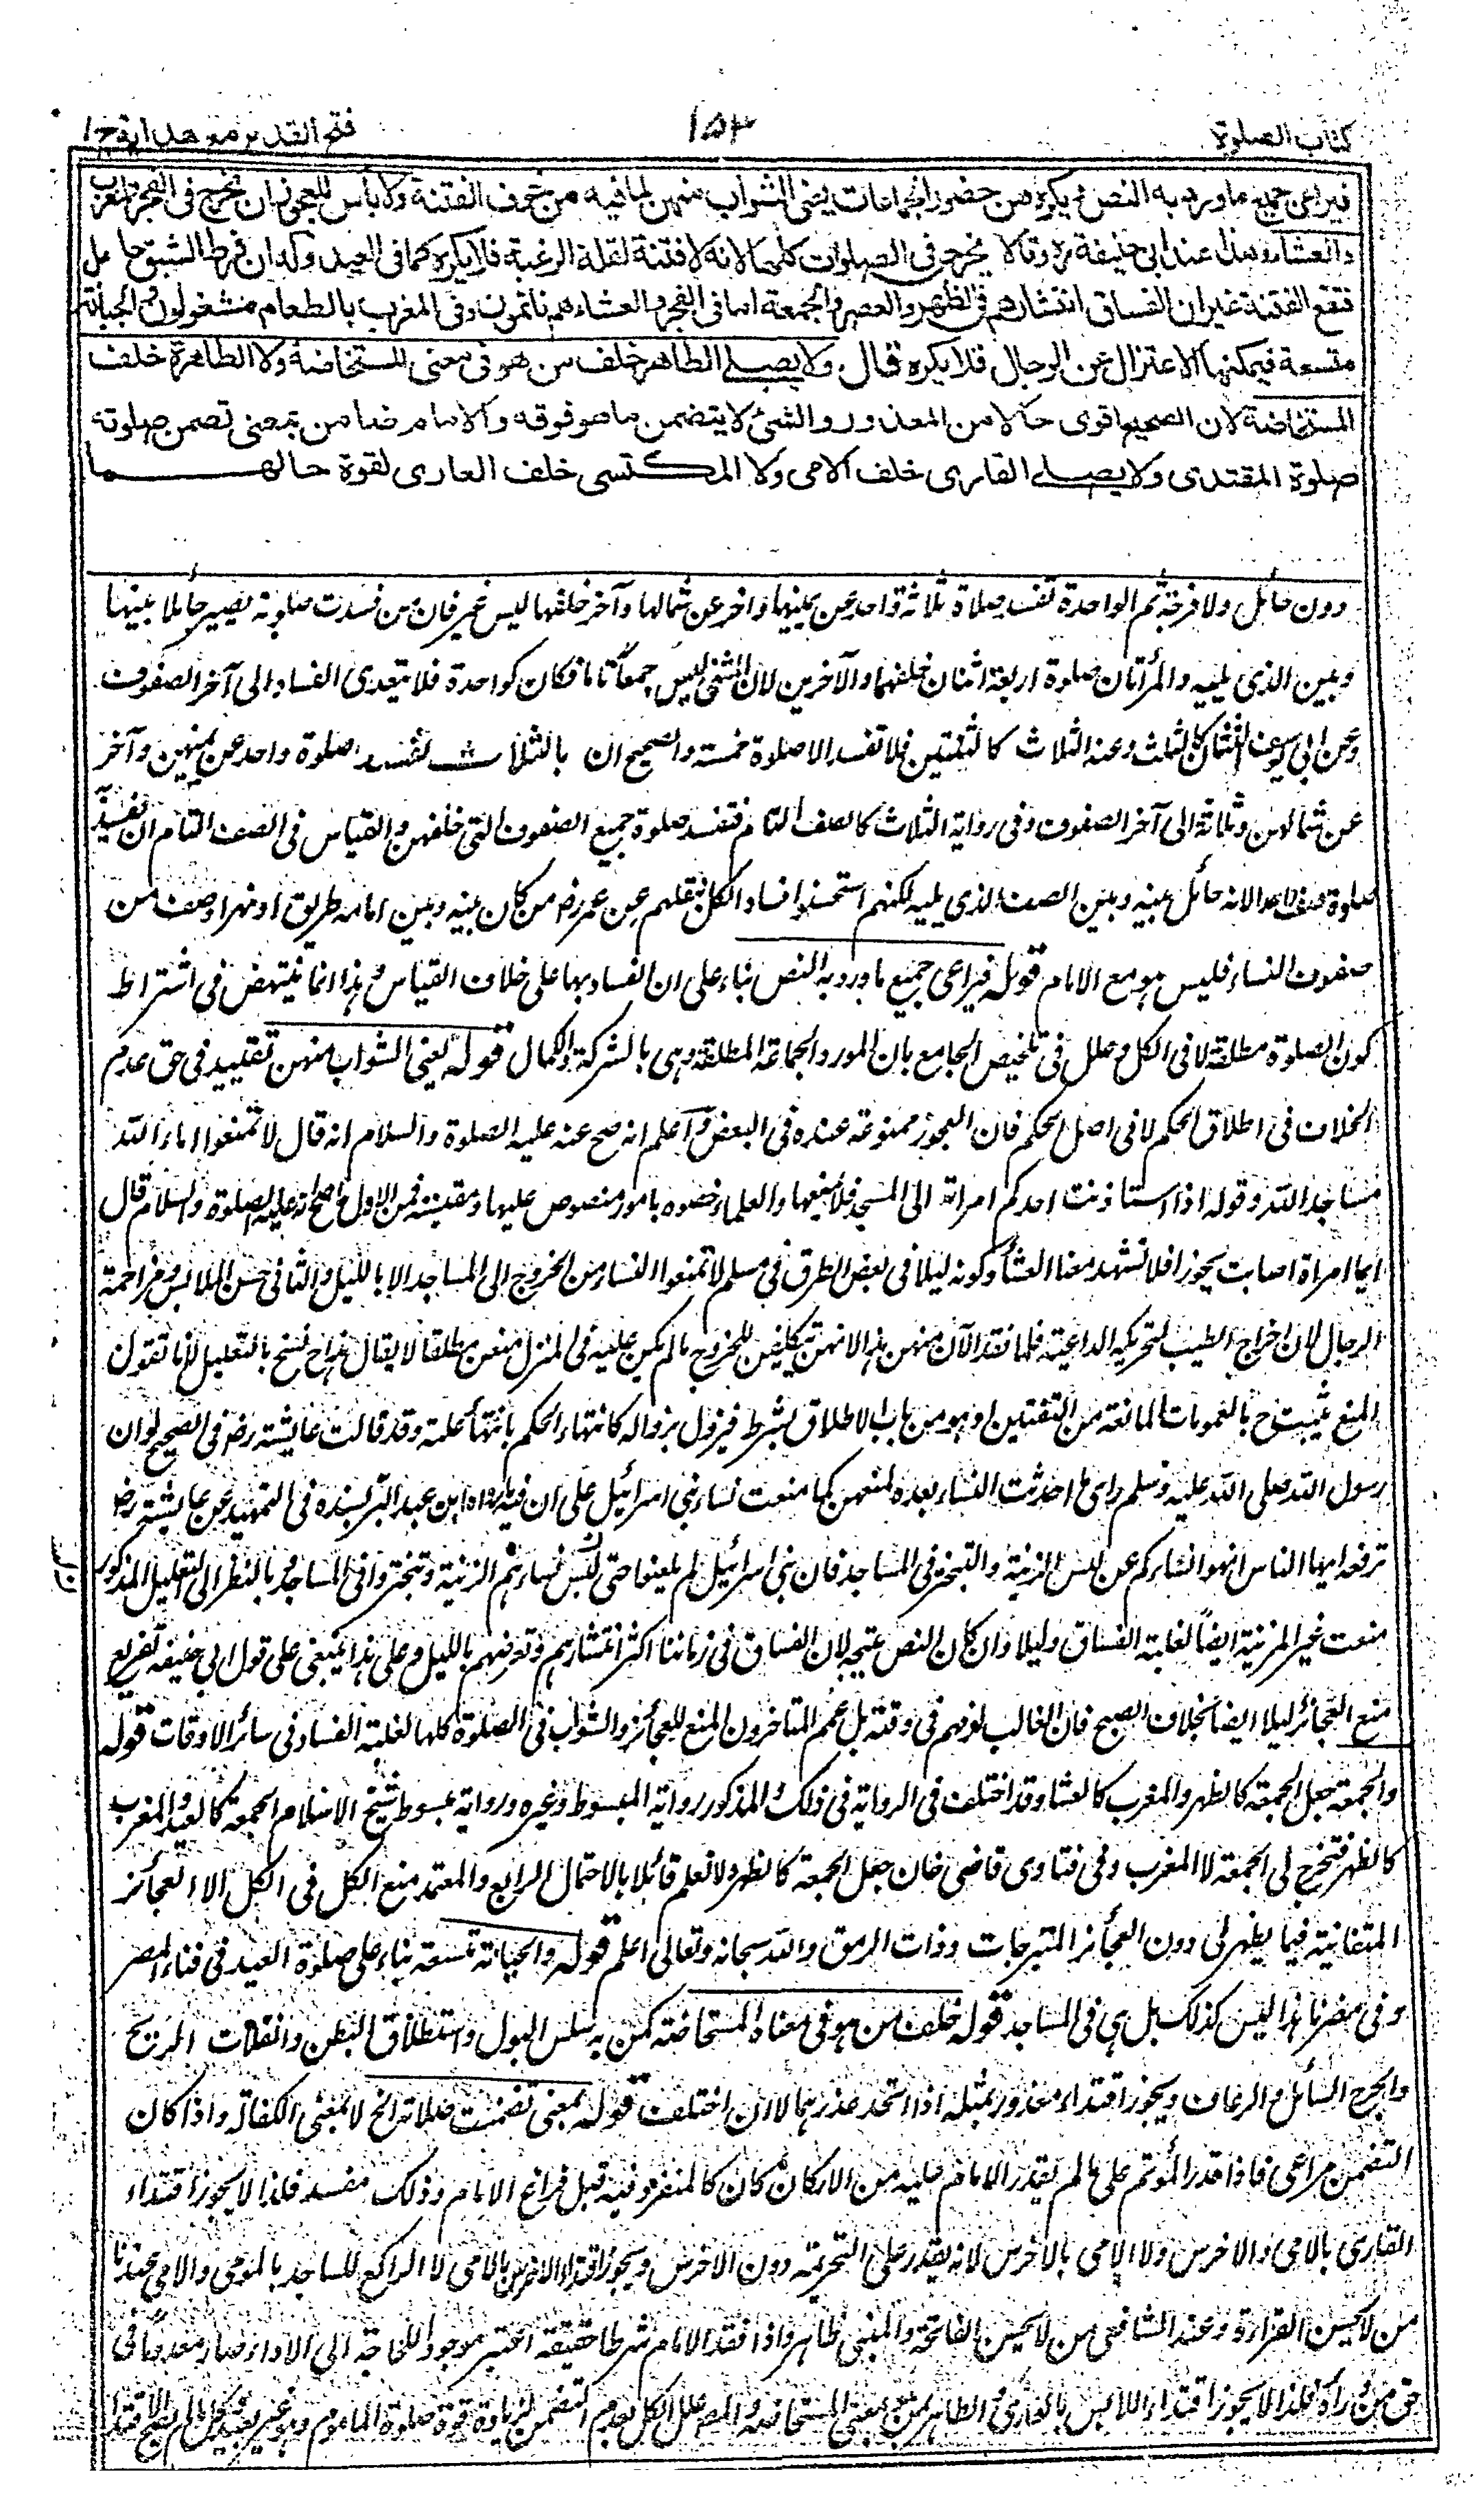 كتاب الصلوة
١٥٣
فتح القدير مع هدايه ج ١
فيراعى جميع ما ورد به النص ويكره لهن حضور الجماعات يعنى الشواب منهن لما فيه من خوف الفتنة ولا بأس للعجوز ان تخرج فى الفجر والمغرب
والعشاء وهذا عند ابى حنيفة ره وقالا يخرجن فى الصلوات كلها لانه لا فتنة لقلة الرغبة فلا يكره كما فى العيد وله ان فرط الشبق حامل
فتقع الفتنة غير ان الفساق انتشارهم فى الظهر والعصر والجمعة اما فى الفجر والعشاء هم نائمون وفى المغرب بالطعام مشغولون والجبانة
متسعة فيمكنها الاعتزال عن الرجال فلا يكره قال ولا يصلے الطاهر خلف من هو فى معنى المستحاضة ولا الطاهرة خلف
المستحاضة لان الصحيح اقوى حالا من المعذور والشئ لا يتضمن ما هو فوقه والامام ضامن بمعنى تضمن صلوته
صلوة المقتدى ولا يصلے القارى خلف الامى ولا المكتسى خلف العارى لقوة حالهما
دون حائل ولا فرجة ثم الواحدة تفسد صلاة ثلاثة واحد عن يمينها وآخر عن شمالها وآخر خلفها ليس غير فان من فسدت صلوته يصير حائلا بينها
وبين الذى يليه والمرأتان صلوة اربعة اثنان خلفهما والآخرين لان المثنى ليس جمعا تاما فكان كواحدة فلا يتعدى الفساد الى آخر الصفوف
وعن ابى يوسف الثنتان كالثلث وعنه الثلاث كالثنتين فلا تفسد الا صلوة خمسة والصحيح ان بالثلاث تفسد صلوة واحد عن يمينهن وآخر
عن شمالهن وثلاثة الى آخر الصفوف وفى رواية الثلاث كالصف التام فتفسد صلوة جميع الصفوف التى خلفهن والقياس فى الصف التام ان تفسد به
صلوة صف لا غير الا انه حائل بينه وبين الصف الذى يليه لكنهم استحسنوا فساد الكل بنقلهم عن عمر رض من كان بينه وبين امامه طريق او نهر او صف من
صفوف النساء فليس هو مع الامام قوله فيراعى جميع ما ورد به النص بناء على ان الفساد بها على خلاف القياس وهذا انما ينتهض فى اشتراط
كون الصلوة مطلقة لا فى الكل وعلل فى تلخيص الجامع بان المورد الجماعة المطلقة وهى بالشركة والكمال قوله يعنى الشواب منهن تقييد فى حق عدم
الخلاف فى اطلاق الحكم لا فى اصل الحكم فان العجوز ممنوعة عنده فى البعض واعلم انه صح عنه عليه الصلوة والسلام انه قال لا تمنعوا اماء الله
مساجد الله وقوله اذا استاذنت احدكم امرأته الى المسجد فلا يمنعها والعلماء خصوه بامور منصوص عليها ومقيسة فمن الاول ما صح انه عليه الصلوة والسلام قال
ايما امرأة اصابت بخورا فلا تشهد معنا العشاء وكونه ليلا فى بعض الطرق فى مسلم لا تمنعوا النساء من الخروج الى المساجد الا بالليل والثانى حسن الملابس ومزاحمة
الرجال لان اخراج الطيب لتحريكه الداعية فلما فقد الآن منهن هذا لانهن يتكلفن للخروج ما لم يكن عليه فى المنزل منعن مطلقا لا يقال هذا ح نسخ بالتعليل لانا نقول
المنع يثبت ح بالعمومات المانعة من التفتين او هو من باب الاطلاق بشرط فيزول بزواله كانتهاء الحكم بانتهاء علته وقد قالت عائشة رض فى الصحيح لو ان
رسول الله صلى الله عليه وسلم رأى ما احدثت النساء بعده لمنعهن كما منعت نساء بنى اسرائيل على ان فيه ما رواه ابن عبد البر بسنده فى التمهيد عن عائشة رض
ترفعه ايها الناس انهوا نساءكم عن لبس الزينة والتبختر فى المساجد فان بنى اسرائيل لم يلعنوا حتى لبس نساؤهم الزينة وتبختروا فى المساجد وبالنظر الى التعليل المذكور
منعت غير المزينة ايضا لغلبة الفساق وليلا وان كان النص يبيحه لان الفساق فى زماننا اكثر انتشارهم وتعرضهم بالليل وعلى هذا ينبغى على قول ابى حنيفة تفريع
منع العجائز ليلا ايضا بخلاف الصبح فان الغالب نومهم فى وقته بل عمم المتاخرون المنع للعجائز والشواب فى الصلوة كلها لغلبة الفساد فى سائر الاوقات قوله
والجمعة جعل الجمعة كالظهر والمغرب كالعشاء وقد اختلف فى الرواية فى ذلك والمذكور رواية المبسوط وغيره ورواية مبسوط شيخ الاسلام الجمعة كالعيد والمغرب
كالظهر فتخرج الى الجمعة لا المغرب وفى فتاوى قاضى خان جعل الجمعة كالظهر ولا نعلم قائلا بالاحتمال الرابع والمعتمد منع الكل فى الكل الا العجائز
المتفانية فيما يظهر لى دون العجائز المتبرجات وذات الرمق والله سبحانه وتعالى اعلم قوله والجبانة متسعة بناء على صلوة العيد فى فناء المصر
وفى مصرنا هذا ليس كذلك بل هى فى المساجد قوله خلف من هو فى معناه المستحاضة كمن به سلس البول واستطلاق البطن وانفلات الريح
والجرح السائل والرعاف ويجوز اقتداء معذور بمثله اذا اتحد عذرهما لا ان اختلف قوله بمعنى تضمنت صلاته الخ لا بمعنى الكفالة واذا كان
التضمن مراعى فاذا قدر المؤتم على ما لم يقدر الامام عليه من الاركان كان كالمنفرد فيه قبل فراغ الامام وذلك مفسد فلذا لا يجوز اقتداء
القارى بالامى والاخرس ولا الامى بالاخرس لانه يقدر على التحريمة دون الاخرس ويجوز اقتداء الاخرس بالامى لا الراكع الساجد بالمومى والامى عندنا
من لا يحسن القراءة وعند الشافعى من لا يحسن الفاتحة والمبنى ظاهر واذا فقد الامام شرطا حقيقة اعتبر موجودا للحاجة الى الاداء صار معدوما فى
حق من وراءه فلذا لا يجوز اقتداء اللابس بالعارى والطاهر بمن بمعنى المستحاضة والمص علل الكل بعدم التضمن لزيادة قوة صلوة الماموم